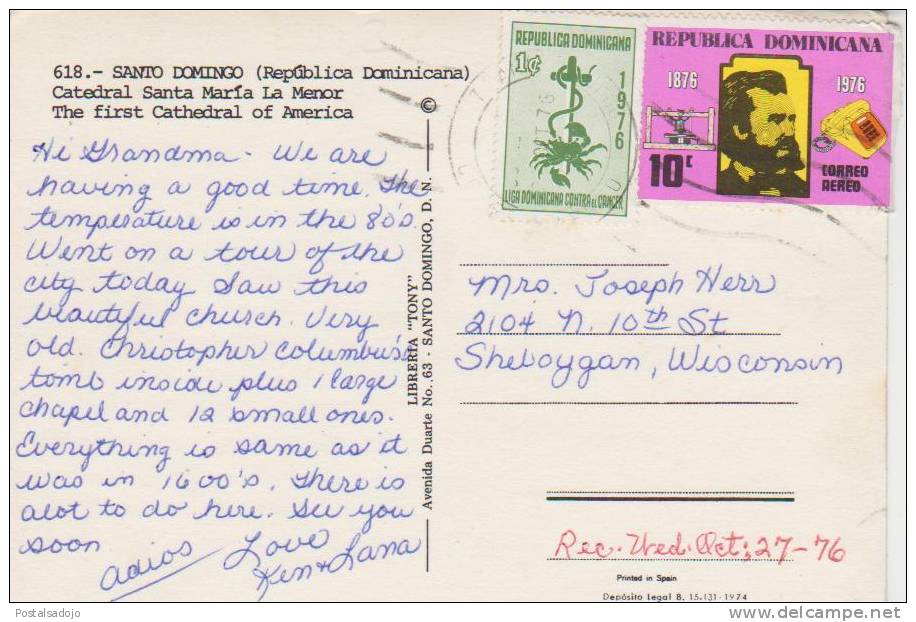 618.- SANTO DOMINGO (República Dominicana)
Catedral Santa María La Menor
The first Cathedral of America
©
Hi Grandma - We are
having a good time. The
temperature is in the 80's.
Went on a tour of the
city today Saw this
beautiful church. Very
old. Christopher Columbus's
tomb inside plus 1 large
chapel and 12 small ones.
Everything is same as it
was in 1600's. There is
alot to do here. See you
soon
adios Love
Ken & Lana
LIBRERIA "TONY"
Avenida Duarte No. 63 - SANTO DOMINGO, D. N.
REPUBLICA DOMINICANA
1¢
1976
LIGA DOMINICANA CONTRA EL CANCER
REPUBLICA DOMINICANA
1876 1976
10c
CORREO
AEREO
Mrs. Joseph Herr
2104 N. 10th St
Sheboygan, Wisconsin
Rec. Wed. Oct; 27-76
Printed in Spain
Depósito Legal B. 15.131-1974
Postalsadojo
www.delcampe.net